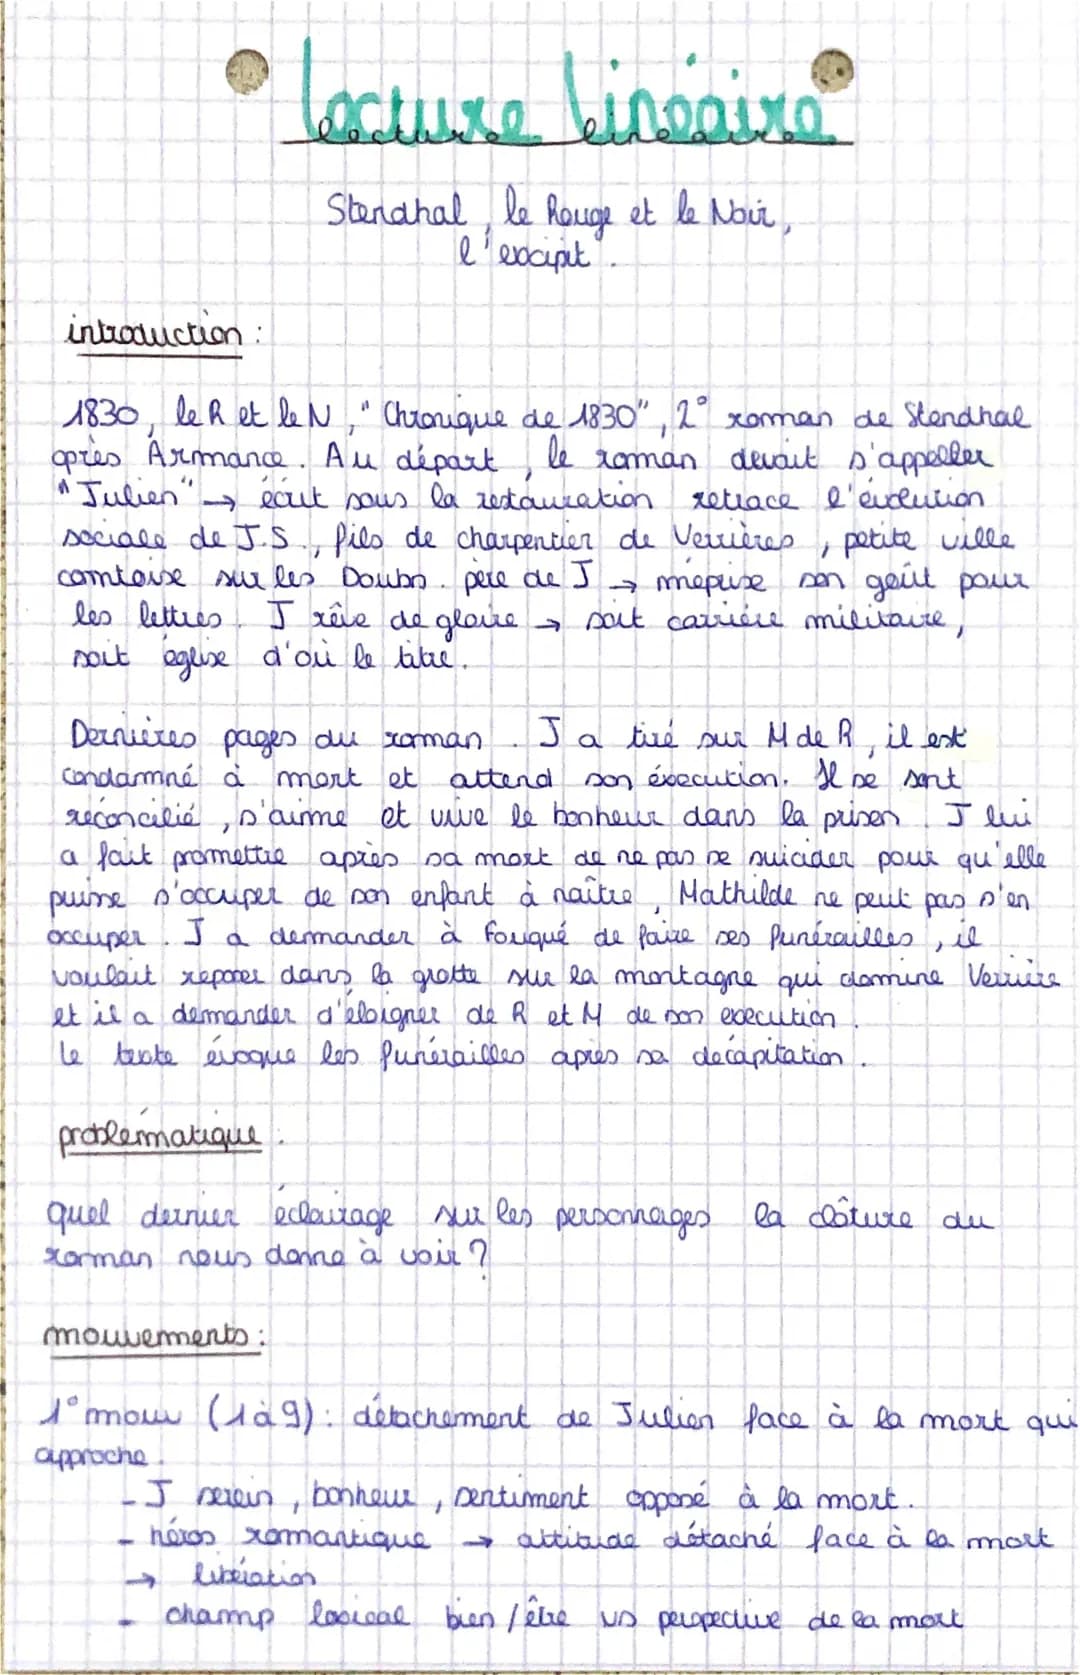 Lecture linéaire
lecture linéaire
Stendhal, le Rouge et le Noir,
l'excipit.
introduction :
1830, le R et le N, "Chronique de 1830", 2° roman de Stendhal
après Armance. Au départ, le roman devait s'appeller
"Julien" → écrit sous la restauration retrace l'évolution
sociale de J.S., fils de charpentier de Verrières, petite ville
comtoise sur les Doubs. père de J → méprise son goût pour
les lettres. J rêve de gloire → soit carrière militaire,
soit église d'où le titre.
Dernières pages du roman. J a tiré sur M de R, il est
condamné à mort et attend son éxecution. Il se sont
réconcilié, s'aime et vive le bonheur dans la prison. J lui
a fait promettre après sa mort de ne pas se suicider pour qu'elle
puisse s'occuper de son enfant à naître, Mathilde ne peut pas s'en
occuper. J a demander à Fouqué de faire ses funérailles, il
voulait reposer dans la grotte sur la montagne qui domine Verrière
et il a demander d'éloigner de R et M de son execution.
Le texte évoque les funérailles après sa décapitation.
problématique :
quel dernier éclairage sur les personnages la clôture du
roman nous donne à voir ?
mouvements :
1° mouv (1 à 9) : détachement de Julien face à la mort qui
approche.
- J serein, bonheur, sentiment opposé à la mort.
- héros romantique → attitude détaché face à la mort
→ libération
- champ lexical bien/être vs perspective de la mort